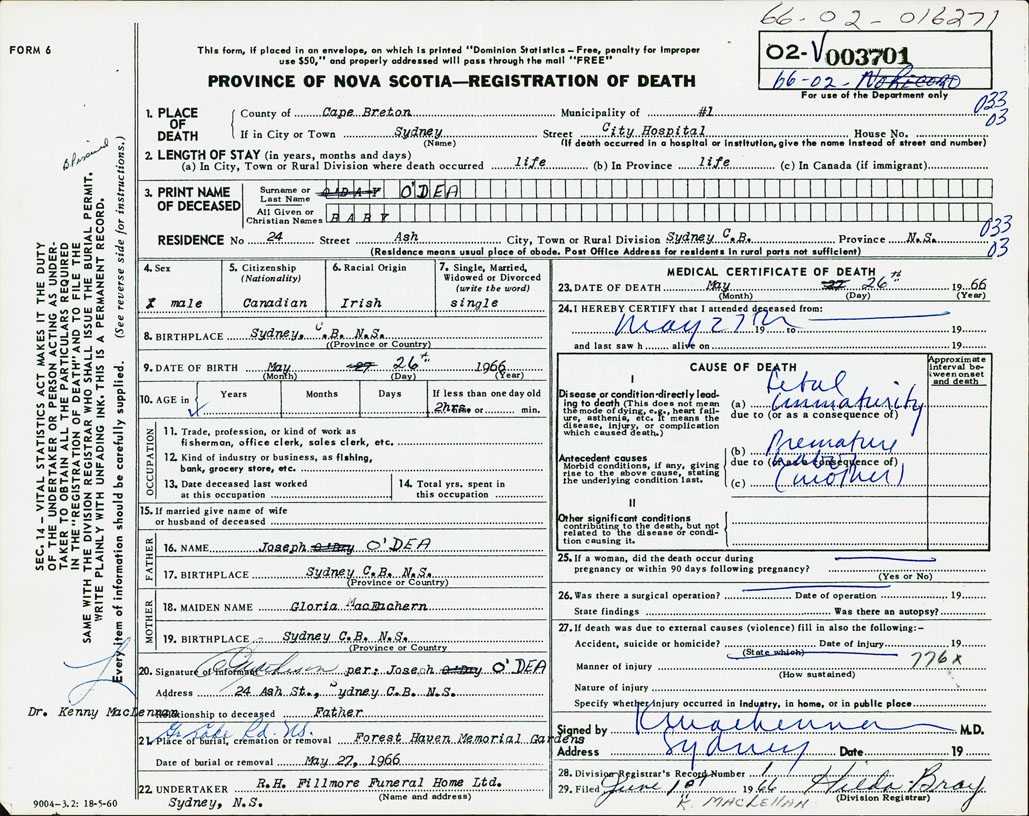 66-02-016271
FORM 6
This form, if placed in an envelope, on which is printed "Dominion Statistics – Free, penalty for improper
use $50," and properly addressed will pass through the mail "FREE"
PROVINCE OF NOVA SCOTIA—REGISTRATION OF DEATH
02-V 003701
66-02-No Record
For use of the Department only
033
03
1. PLACE OF DEATH
County of Cape Breton Municipality of #1
If in City or Town Sydney Street City Hospital House No.
(Name) (If death occurred in a hospital or institution, give the name instead of street and number)
2. LENGTH OF STAY (in years, months and days)
(a) In City, Town or Rural Division where death occurred life (b) In Province life (c) In Canada (if immigrant)
3. PRINT NAME OF DECEASED
Surname or Last Name O'DAY O'DEA
All Given or Christian Names BABY
033
03
RESIDENCE No 24 Street Ash City, Town or Rural Division Sydney C.B. Province N.S.
(Residence means usual place of abode. Post Office Address for residents in rural parts not sufficient)
SEC. 14 – VITAL STATISTICS ACT MAKES IT THE DUTY
OF THE UNDERTAKER OR PERSON ACTING AS UNDER-
TAKER TO OBTAIN ALL THE PARTICULARS REQUIRED
IN THE "REGISTRATION OF DEATH" AND TO FILE THE
SAME WITH THE DIVISION REGISTRAR WHO SHALL ISSUE THE BURIAL PERMIT.
WRITE PLAINLY WITH UNFADING INK. THIS IS A PERMANENT RECORD.
Every item of information should be carefully supplied. (See reverse side for instructions.)
4. Sex
X male
5. Citizenship
(Nationality)
Canadian
6. Racial Origin
Irish
7. Single, Married,
Widowed or Divorced
(write the word)
single
8. BIRTHPLACE Sydney, C.B. N.S.
(Province or Country)
9. DATE OF BIRTH May 27 26th 1966
(Month) (Day) (Year)
10. AGE in
Years
Months
Days
If less than one day old
2hrs. hrs. or min.
OCCUPATION
11. Trade, profession, or kind of work as
fisherman, office clerk, sales clerk, etc.
12. Kind of industry or business, as fishing,
bank, grocery store, etc.
13. Date deceased last worked
at this occupation
14. Total yrs. spent in
this occupation
15. If married give name of wife
or husband of deceased
FATHER
16. NAME Joseph O'Day O'DEA
17. BIRTHPLACE Sydney C.B. N.S.
(Province or Country)
MOTHER
18. MAIDEN NAME Gloria MacEachern
19. BIRTHPLACE Sydney C.B. N.S.
(Province or Country
20. Signature of informant per: Joseph O'Day O'DEA
Address 24 Ash St., Sydney C.B. N.S.
Dr. Kenny MacLennan
Relationship to deceased Father
Gr Lake Rd. NS.
21. Place of burial, cremation or removal Forest Haven Memorial Gardens
Date of burial or removal May 27, 1966
22. UNDERTAKER R.H. Fillmore Funeral Home Ltd.
(Name and address)
Sydney, N.S.
9004-3.2: 18-5-60
MEDICAL CERTIFICATE OF DEATH
23. DATE OF DEATH May 27 26th 1966
(Month) (Day) (Year)
24. I HEREBY CERTIFY that I attended deceased from:
May 27th 19 to 19
and last saw h alive on 19
CAUSE OF DEATH
Approximate
interval be-
tween onset
and death
I
Disease or condition directly lead-
ing to death (This does not mean
the mode of dying, e.g., heart fail-
ure, asthenia, etc. It means the
disease, injury, or complication
which caused death.)
(a) Fetal immaturity
due to (or as a consequence of)
Antecedent causes
Morbid conditions, if any, giving
rise to the above cause, stating
the underlying condition last.
(b) Premature labor
due to (or as a consequence of)
(c) (mother)
II
Other significant conditions
contributing to the death, but not
related to the disease or condi-
tion causing it.
25. If a woman, did the death occur during
pregnancy or within 90 days following pregnancy?
(Yes or No)
26. Was there a surgical operation? Date of operation 19
State findings Was there an autopsy?
27. If death was due to external causes (violence) fill in also the following:-
Accident, suicide or homicide? Date of injury 19
(State which)
776x
Manner of injury
(How sustained)
Nature of injury
Specify whether injury occurred in industry, in home, or in public place
Signed by K Maclennan M.D.
Address Sydney Date 19
28. Division Registrar's Record Number 1
29. Filed June 1st 1966 Hilda Bray
K. MACLENAN (Division Registrar)